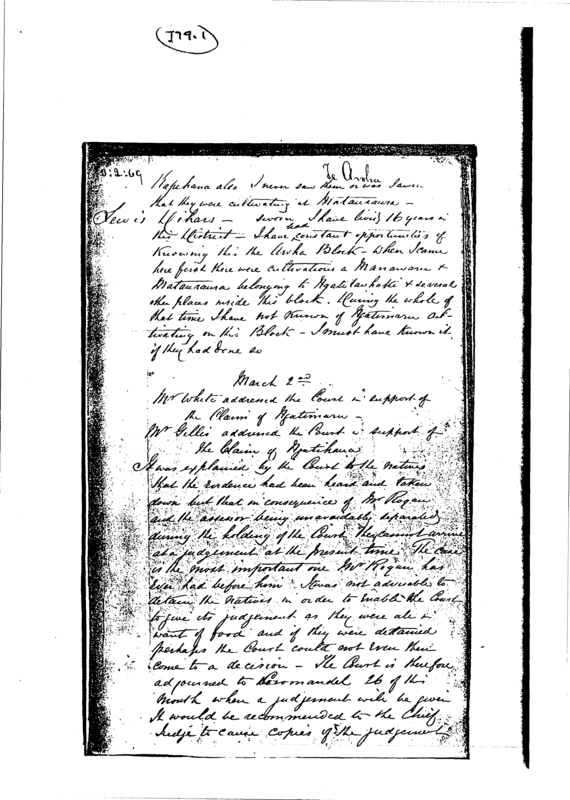 I79.1
3:2:69
Te Aroha
Kapihana also I never saw them or was I aware
that they were cultivating at Matauraura –
Lewis Dihars – sworn I have lived 16 years in
this District – I have had constant opportunities of
Knowing this the Aroha Block – When I came
here first there were cultivations a Manawaru &
Matauraura belonging to Ngatitauhaki & several
other places inside this block. During the whole of
that time I have not known of Ngatimaru cul-
tivating on this Block – I must have known it
if they had done so
March 2nd
Mr White addressed the Court in support of
the Claim of Ngatimaru –
Mr Gillis addressed the Court in support of
the Claim of Ngatihaua
It was explained by the Court to the natives
that the evidence had been heard and taken
down but that in consequence of Mr Rogan
and the assessor being unavoidably separated
during the holding of the Court they cannot arrive
at a judgement at the present time. The case
is the most important one Mr Rogan has
Ever had before him. It was not adviseable to
detain the Natives in order to enable the Court
to give its judgement as they were all in
want of food and if they were detained
perhaps the Court could not even then
come to a decision – The Court is therefore
adjourned to Coromandel 26 of this
Month when a judgement will be given
It would be recommended to the Chief
Judge to cause copies of the judgement